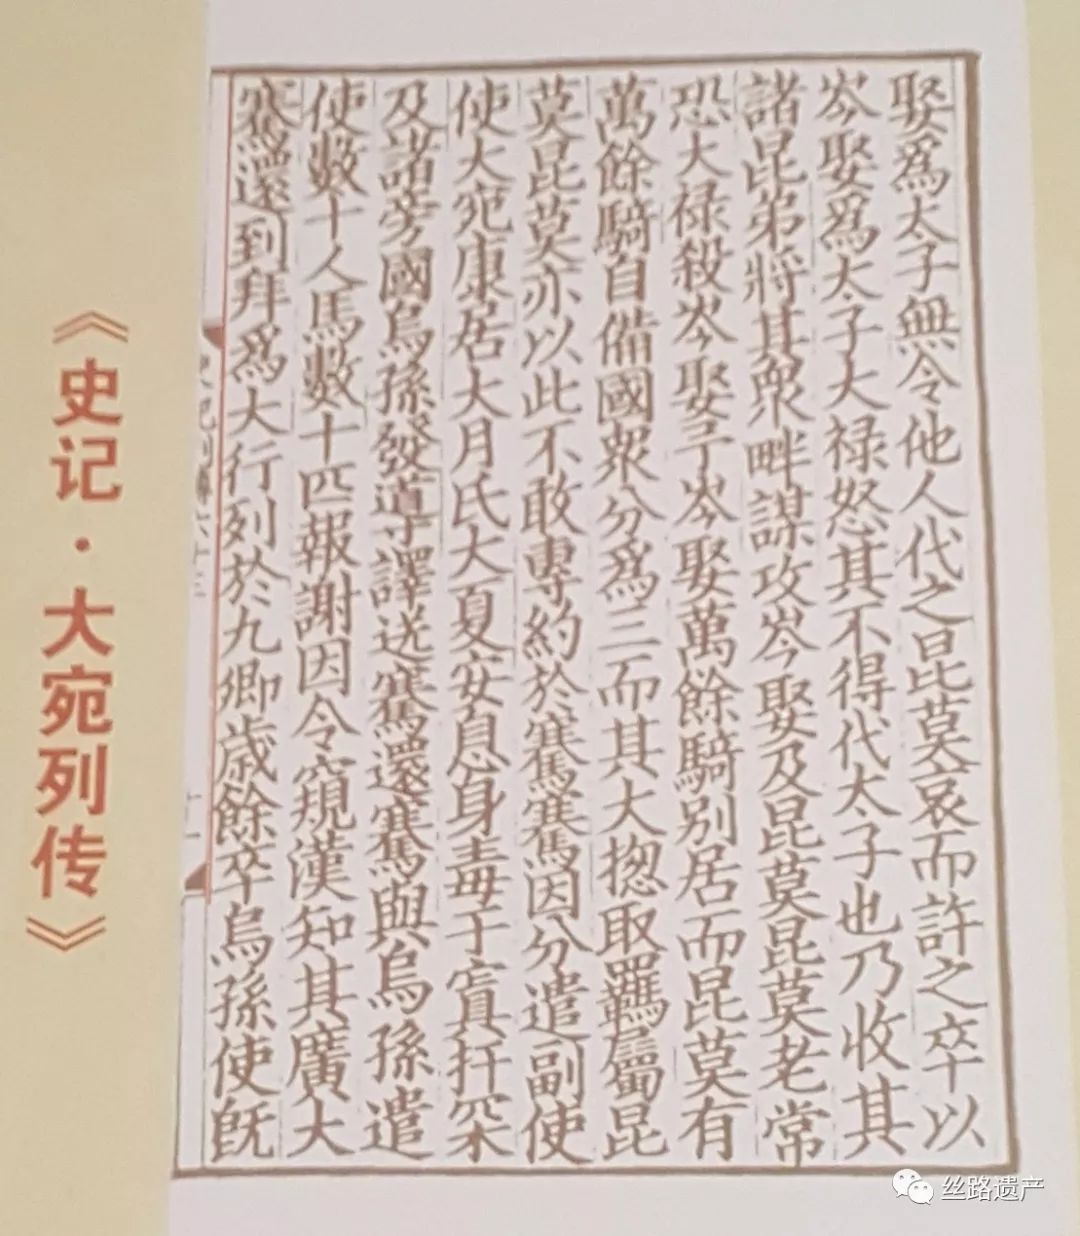 娶爲太子無令他人代之昆莫哀而許之卒以
岑娶爲太子大禄怒其不得代太子也乃收其
諸昆弟將其衆畔謀攻岑娶及昆莫昆莫老常
恐大禄殺岑娶予岑娶萬餘騎别居而昆莫有
萬餘騎自備國衆分爲三而其大揔取羈屬昆
莫昆莫亦以此不敢專約於騫騫因分遣副使
使大宛康居大月氏大夏安息身毒于窴扞罙
及諸旁國烏孫發導譯送騫還騫與烏孫遣
使數十人馬數十匹報謝因令窺漢知其廣大
騫還到拜爲大行列於九卿歲餘卒烏孫使旣
《史记·大宛列传》
丝路遗产